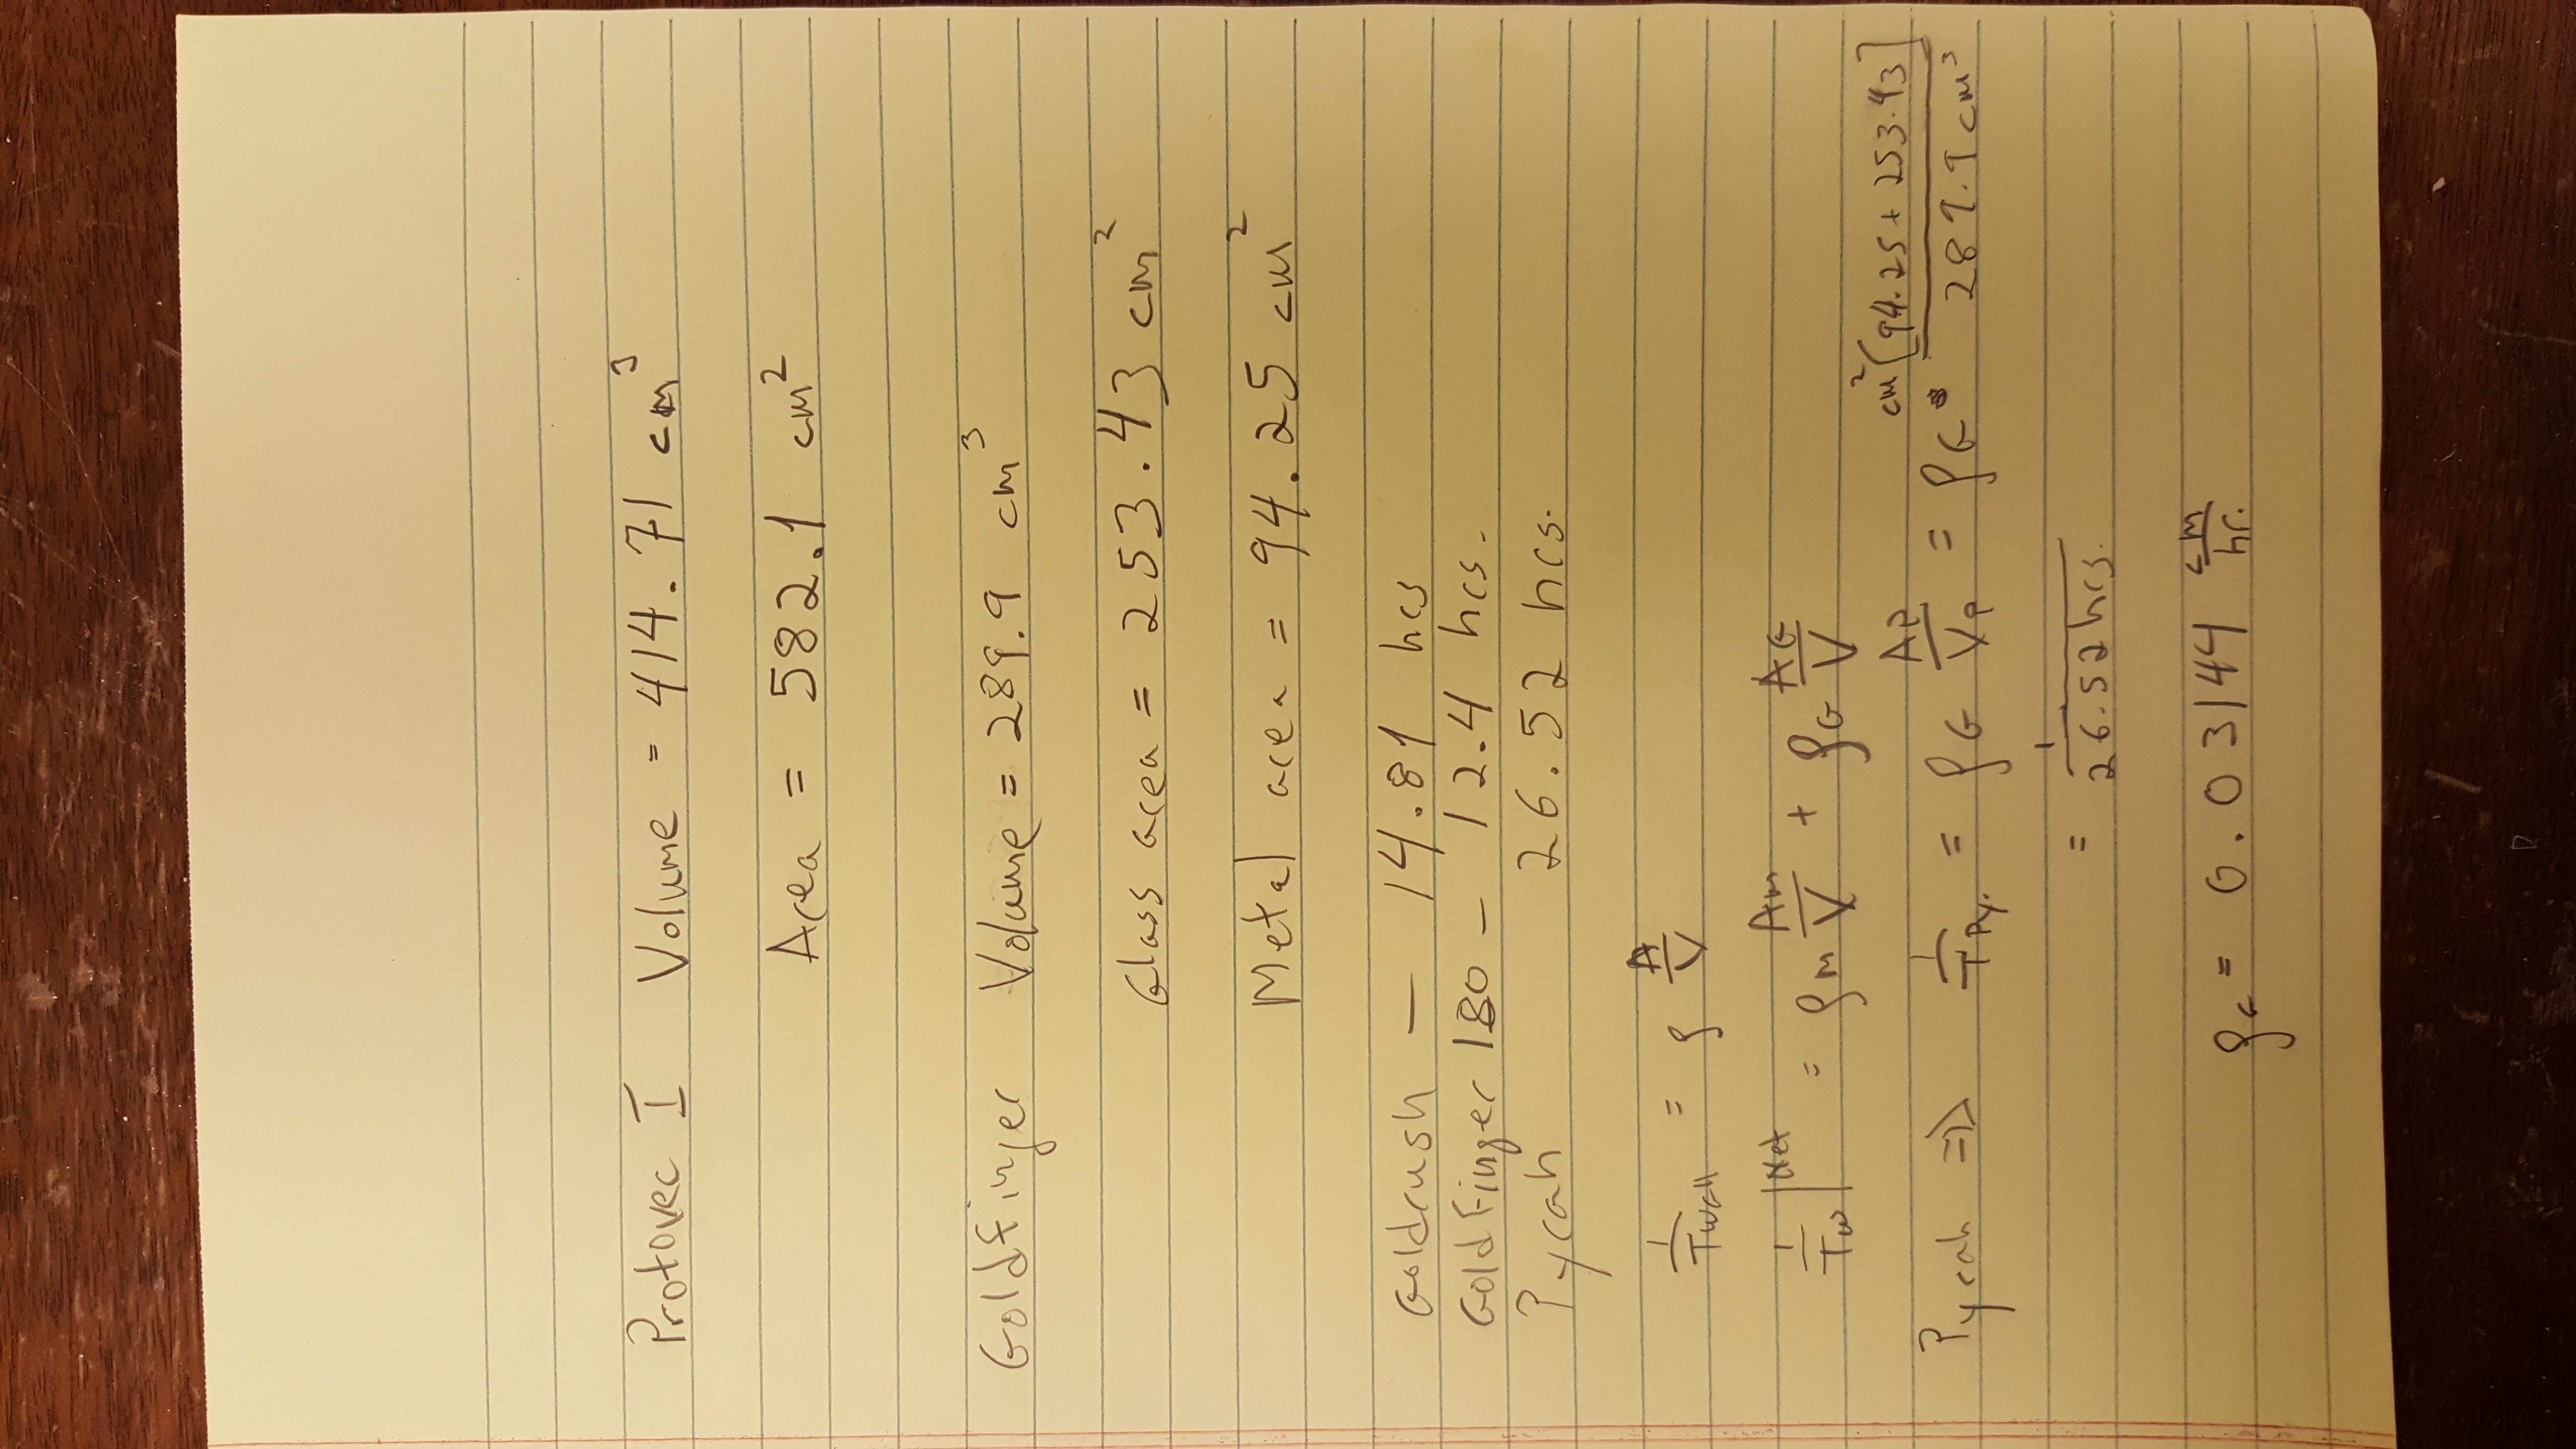 Protovec I Volume = 414.71 cm³
Area = 582.1 cm²
Goldfinger Volume = 289.9 cm³
Glass area = 253.43 cm²
Metal area = 94.25 cm²
Goldrush — 14.81 hrs
Goldfinger 180 — 12.4 hrs.
Pyrah 26.52 hrs.
1/Twall = ρ A/V
1/Tw |Net = ρM Am/V + ρG AG/V
Pyrah ⇒ 1/TPy. = ρG AP/VP = ρG • cm² [94.25 + 253.43] / 289.9 cm³
= 1/26.52 hrs.
ρG = 0.03144 cm/hr.